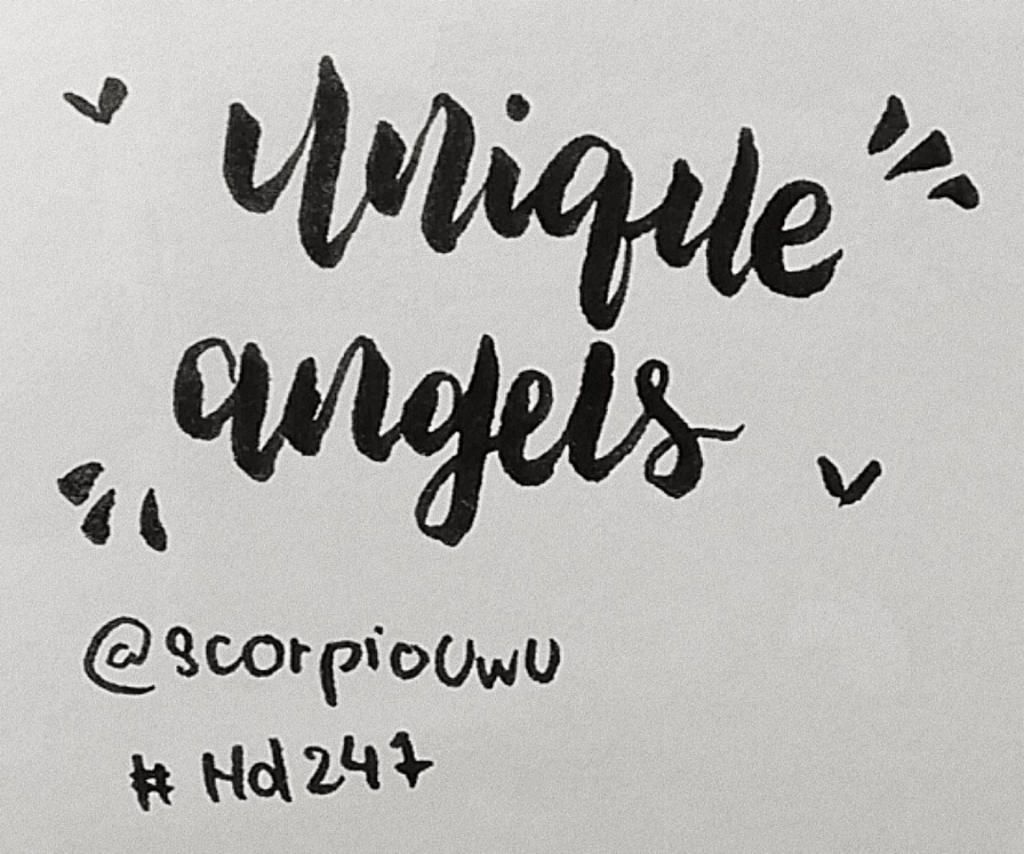 unique
angels
@scorpiouwu
#Hd247